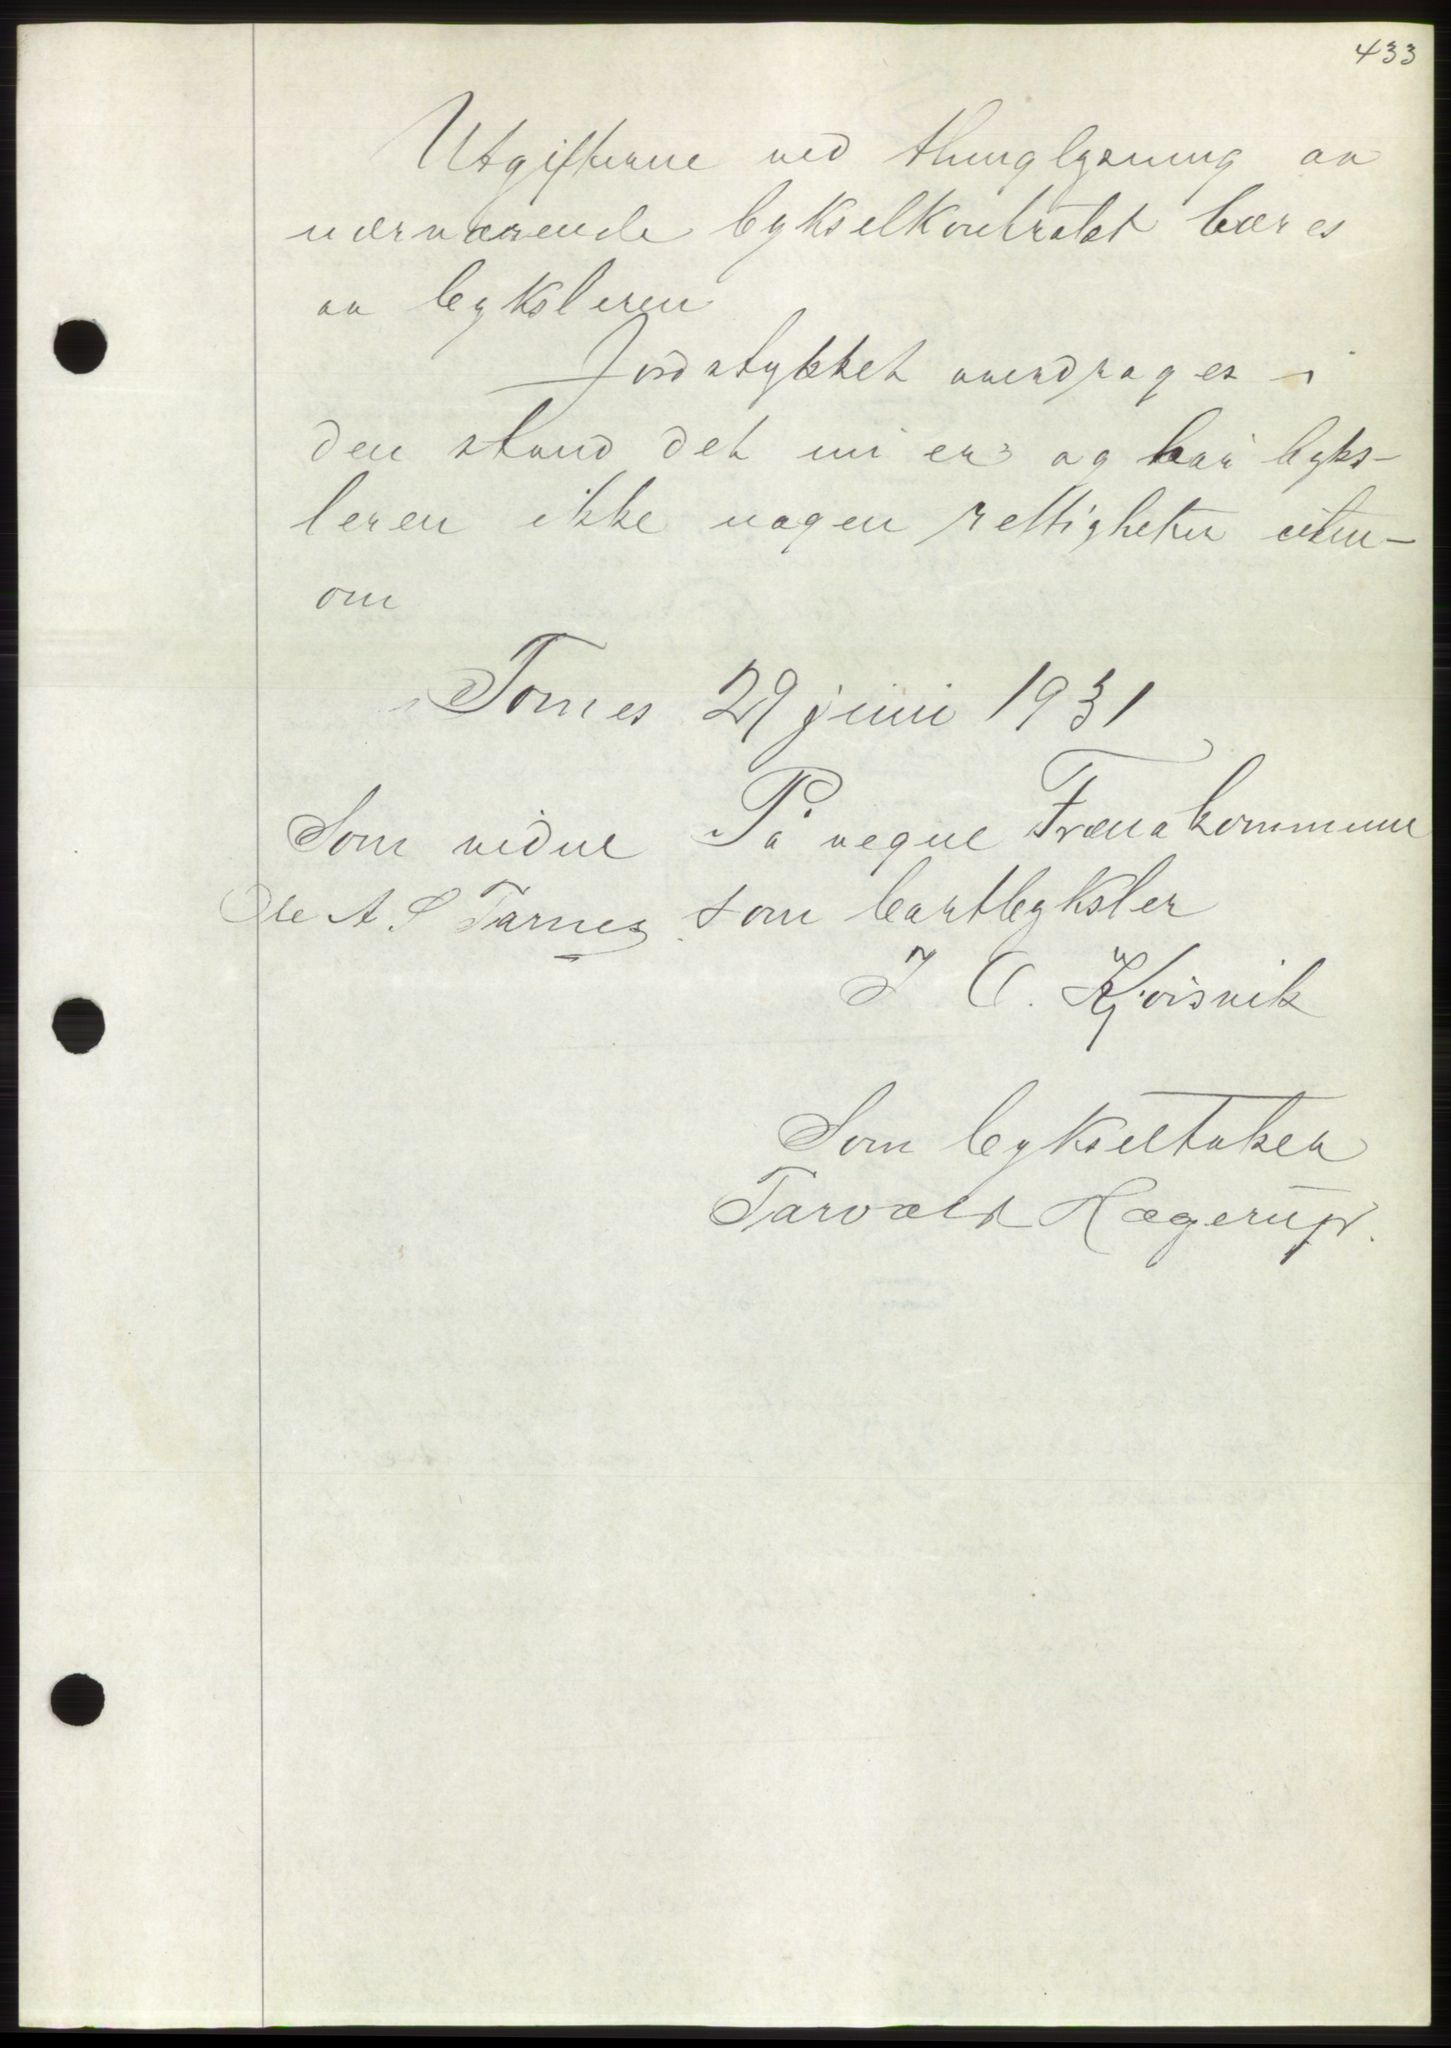 433
Utgifterne ved thinglysning av
nærværende bykselkontrakt bæres
av byksleren
Jordstykket overdrages i
den stand det nu er og har byks-
leren ikke nogen rettigheter uten-
om
Tornes 29 juni 1931
Som vidne På vegne Fræna kommune
Ole A. S Tarnes som bortbyksler
J O. Kjoisvik
Som bykseltaker
Tarvald Hagerup.